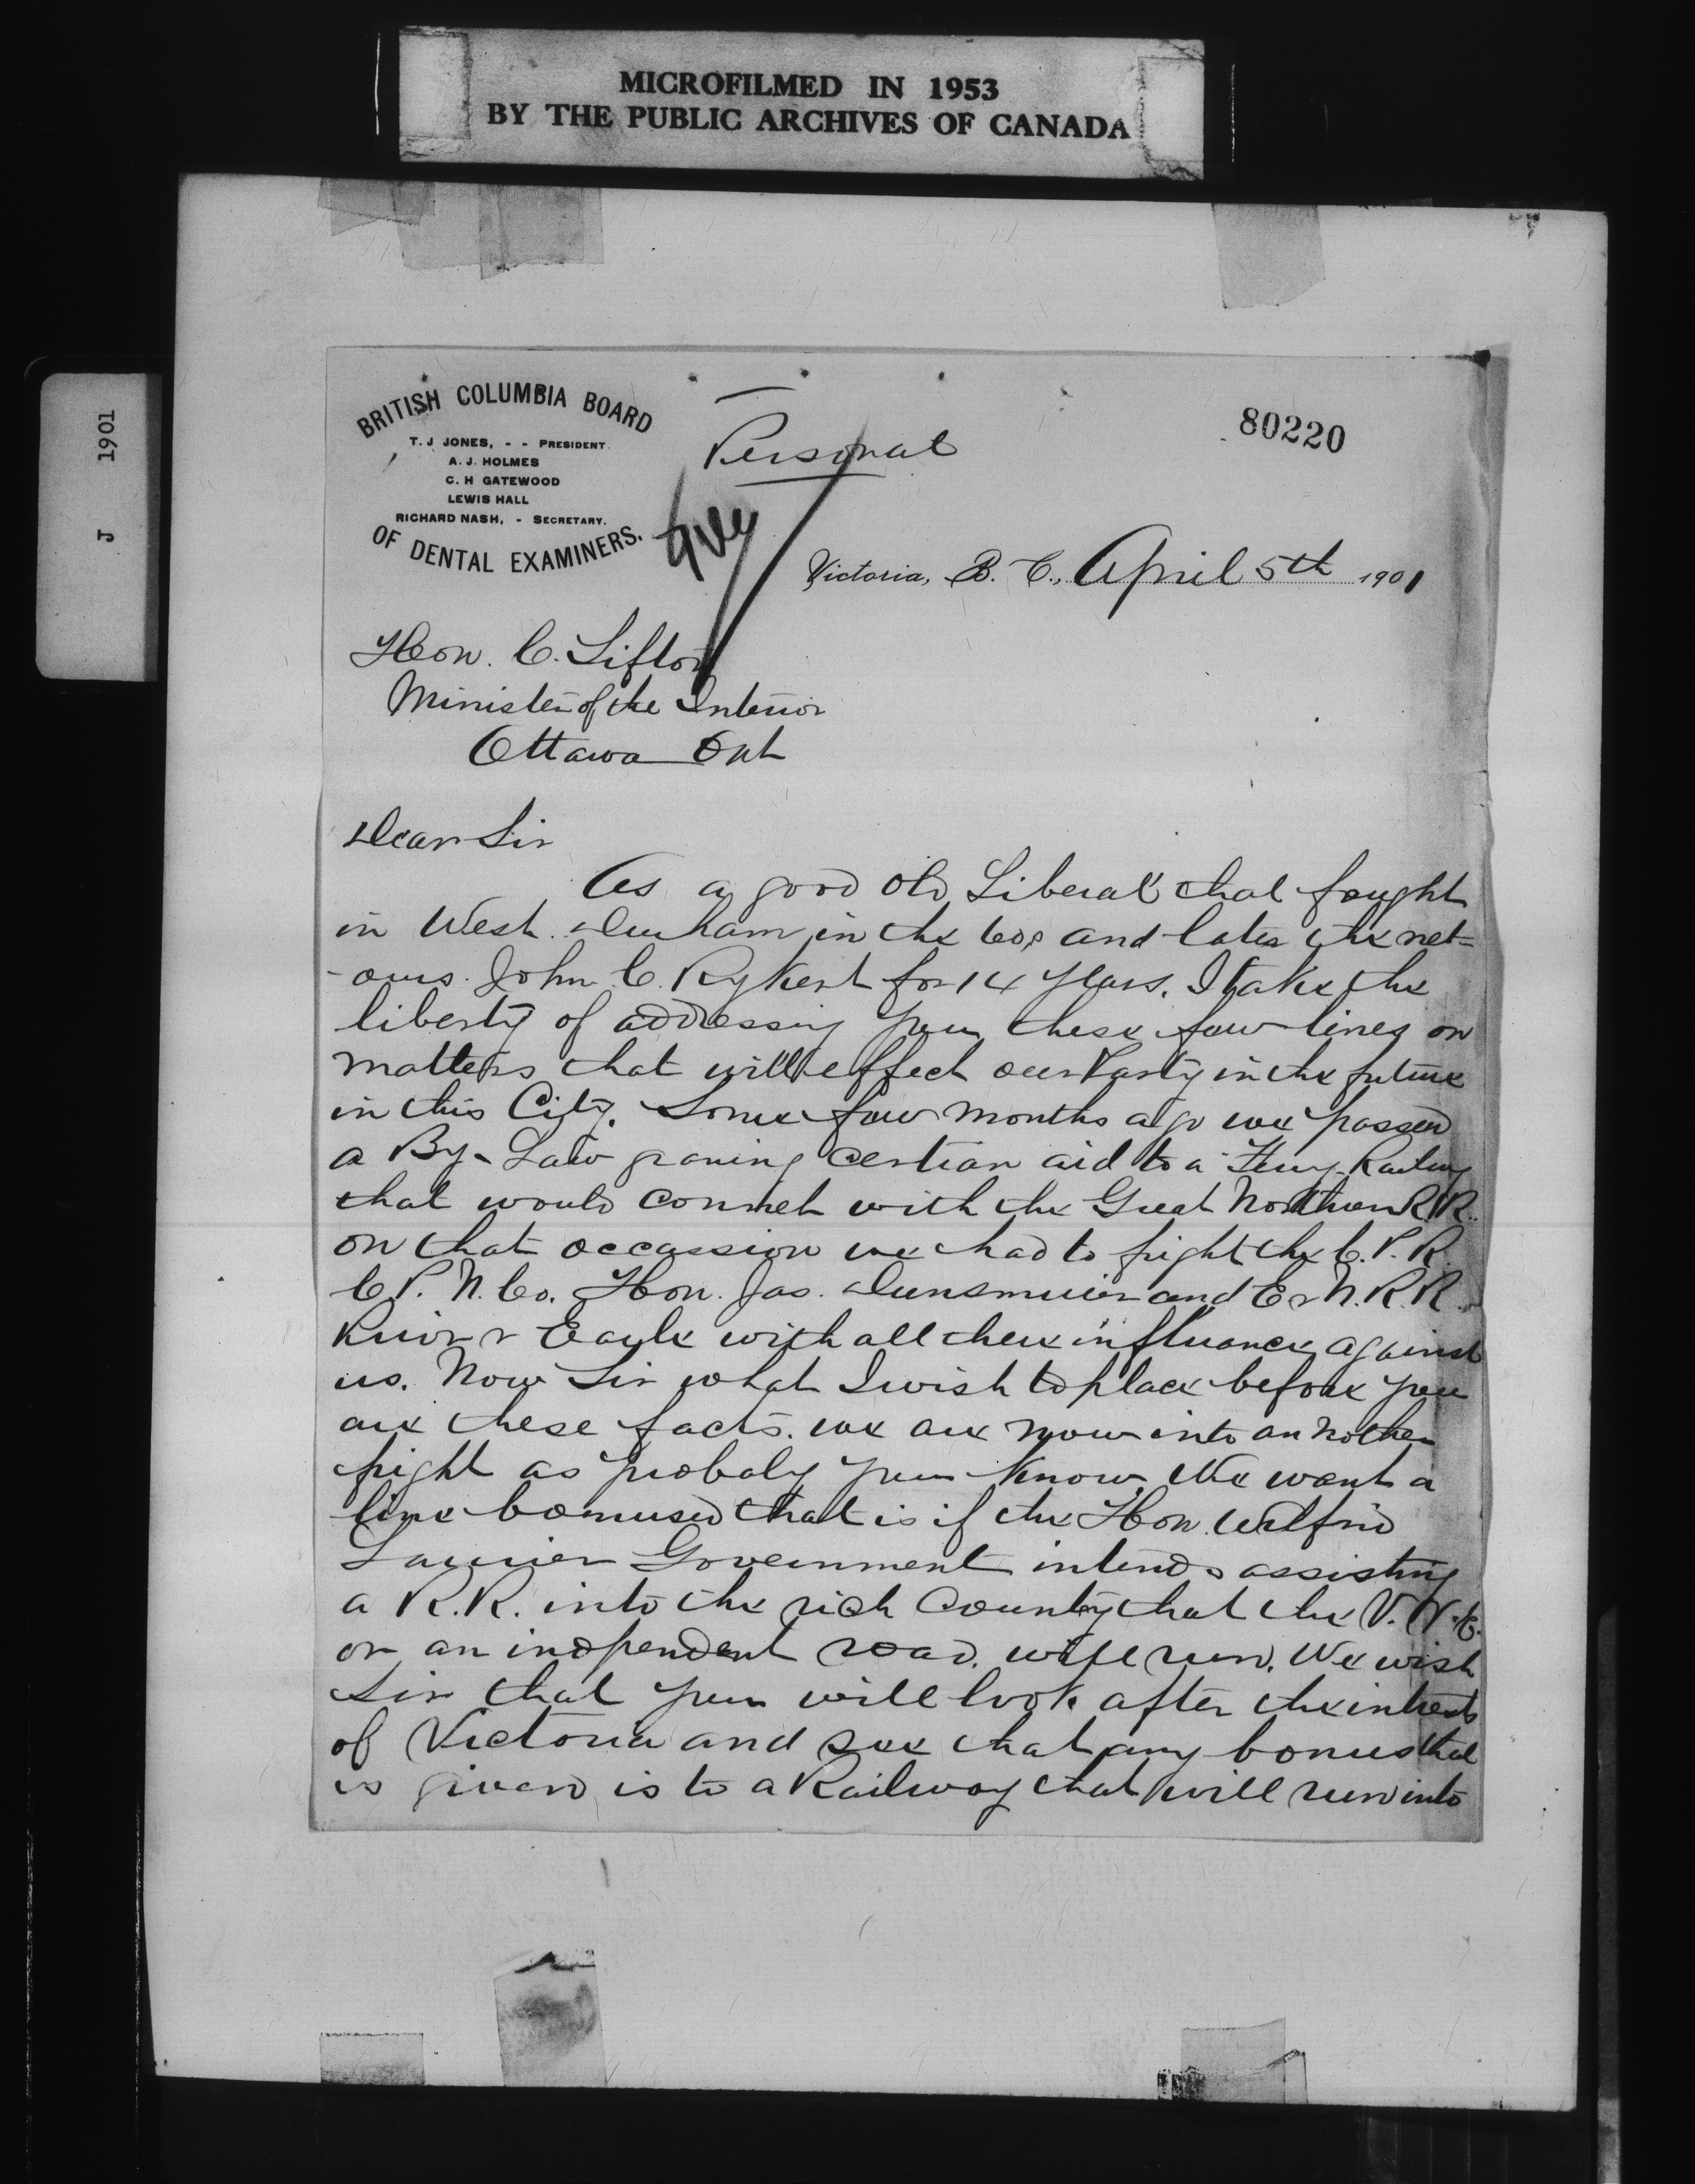 MICROFILMED IN 1953
BY THE PUBLIC ARCHIVES OF CANADA
J 1901
BRITISH COLUMBIA BOARD
T. J JONES, - - PRESIDENT.
A. J. HOLMES
C. H GATEWOOD
LEWIS HALL
RICHARD NASH, - SECRETARY.
OF DENTAL EXAMINERS.
Personal
80220
Victoria, B. C., April 5th 1901
Hon. C. Sifton
Minister of the Interior
Ottawa Ont
Dear Sir
As a good old Liberal that fought
in West Durham in the 60s and later the not-
-ous John C. Rykert for 14 years. I take the
liberty of addressing you these few lines on
matters that will effect our Party in the future
in this City. Some few months ago we passed
a By-Law graning certian aid to a Ferry Railway
that would connect with the Great Northern R.R.
on that occassion we had to fight the C.P.R.
C.P.N.Co. Hon. Jas. Dunsmuier and E & N.R.R.
& Eagle with all their influance against
us. Now Sir what I wish to place before you
are these facts. we are now into an nother
fight as probaly you know. We want a
line bonused that is if the Hon. Wilfrid
Laurier Government intends assisting
a R.R. into the rich County that the V.V.&E.
or an indpendent road will run. We wish
Sir that you will look after the intrests
of Victoria and see that any bonus that
is given is to a Railway that will run into